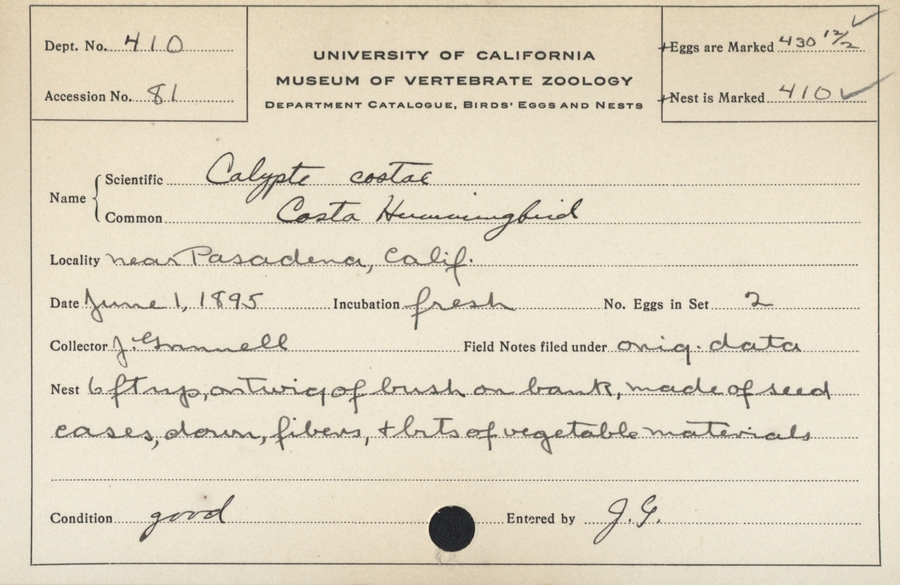 Dept. No. 410
Accession No. 81
UNIVERSITY OF CALIFORNIA
MUSEUM OF VERTEBRATE ZOOLOGY
DEPARTMENT CATALOGUE, BIRDS' EGGS AND NESTS
Eggs are Marked 430 12/2
Nest is Marked 410
Name
Scientific Calypte costae
Common Costa Hummingbird
Locality near Pasadena, Calif.
Date June 1, 1895 Incubation fresh No. Eggs in Set 2
Collector J. Grinnell Field Notes filed under orig. data
Nest 6 ft up, on twig of bush on bank, made of seed
cases, down, fibers, + bits of vegetable materials
Condition good Entered by J.G.